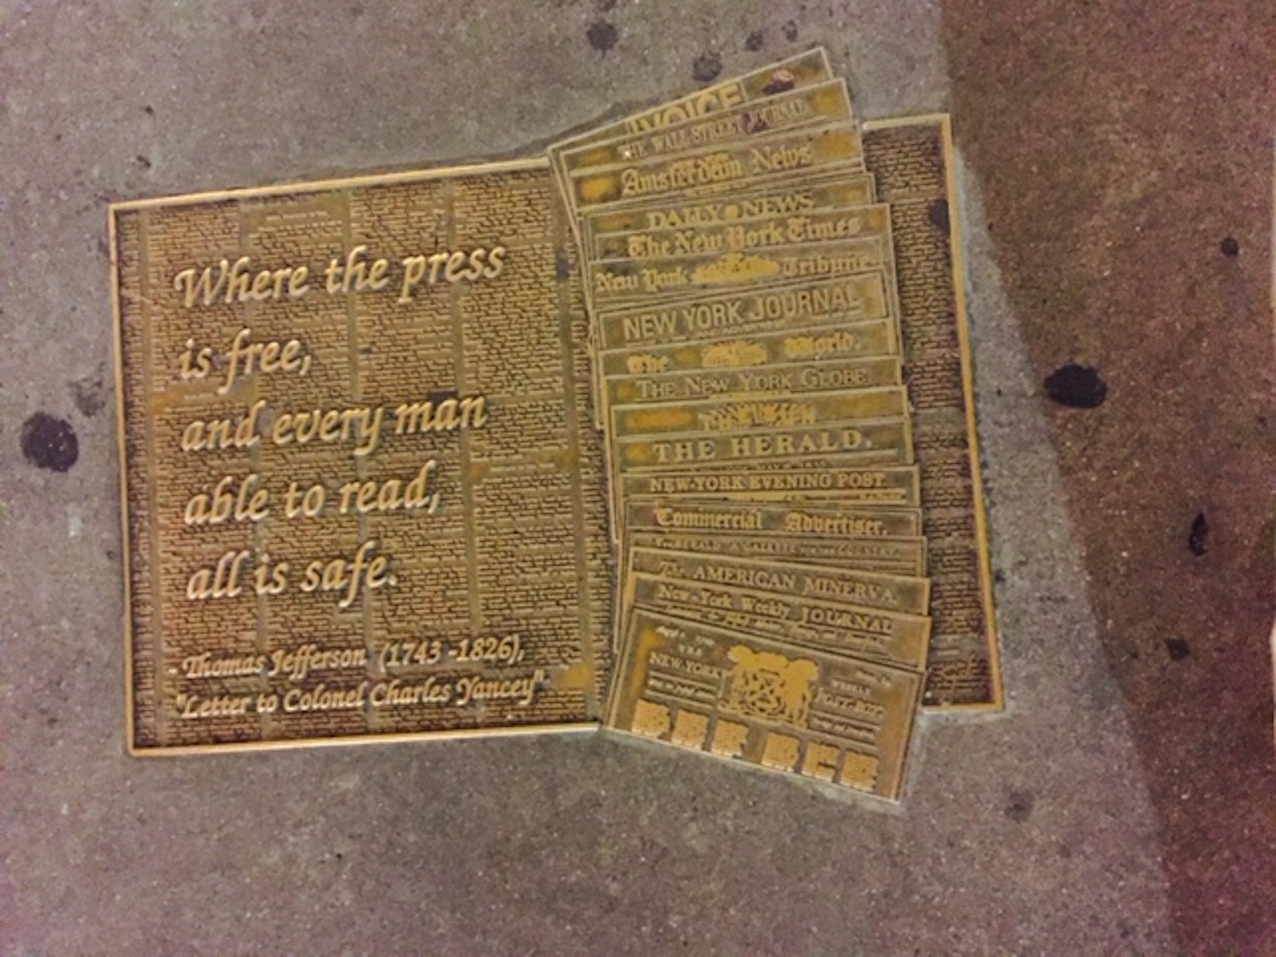 Where the press
is free,
and every man
able to read,
all is safe.
- Thomas Jefferson (1743 -1826),
"Letter to Colonel Charles Yancey"
VOICE
THE WALL STREET JOURNAL
Amsterdam News
DAILY NEWS
The New York Times
New York Tribune
NEW YORK JOURNAL
The World.
THE NEW YORK GLOBE
THE SUN
THE HERALD.
NEW-YORK EVENING POST.
Commercial Advertiser.
The AMERICAN MINERVA
New-York Weekly JOURNAL
THE
NEW-YORK
WEEKLY